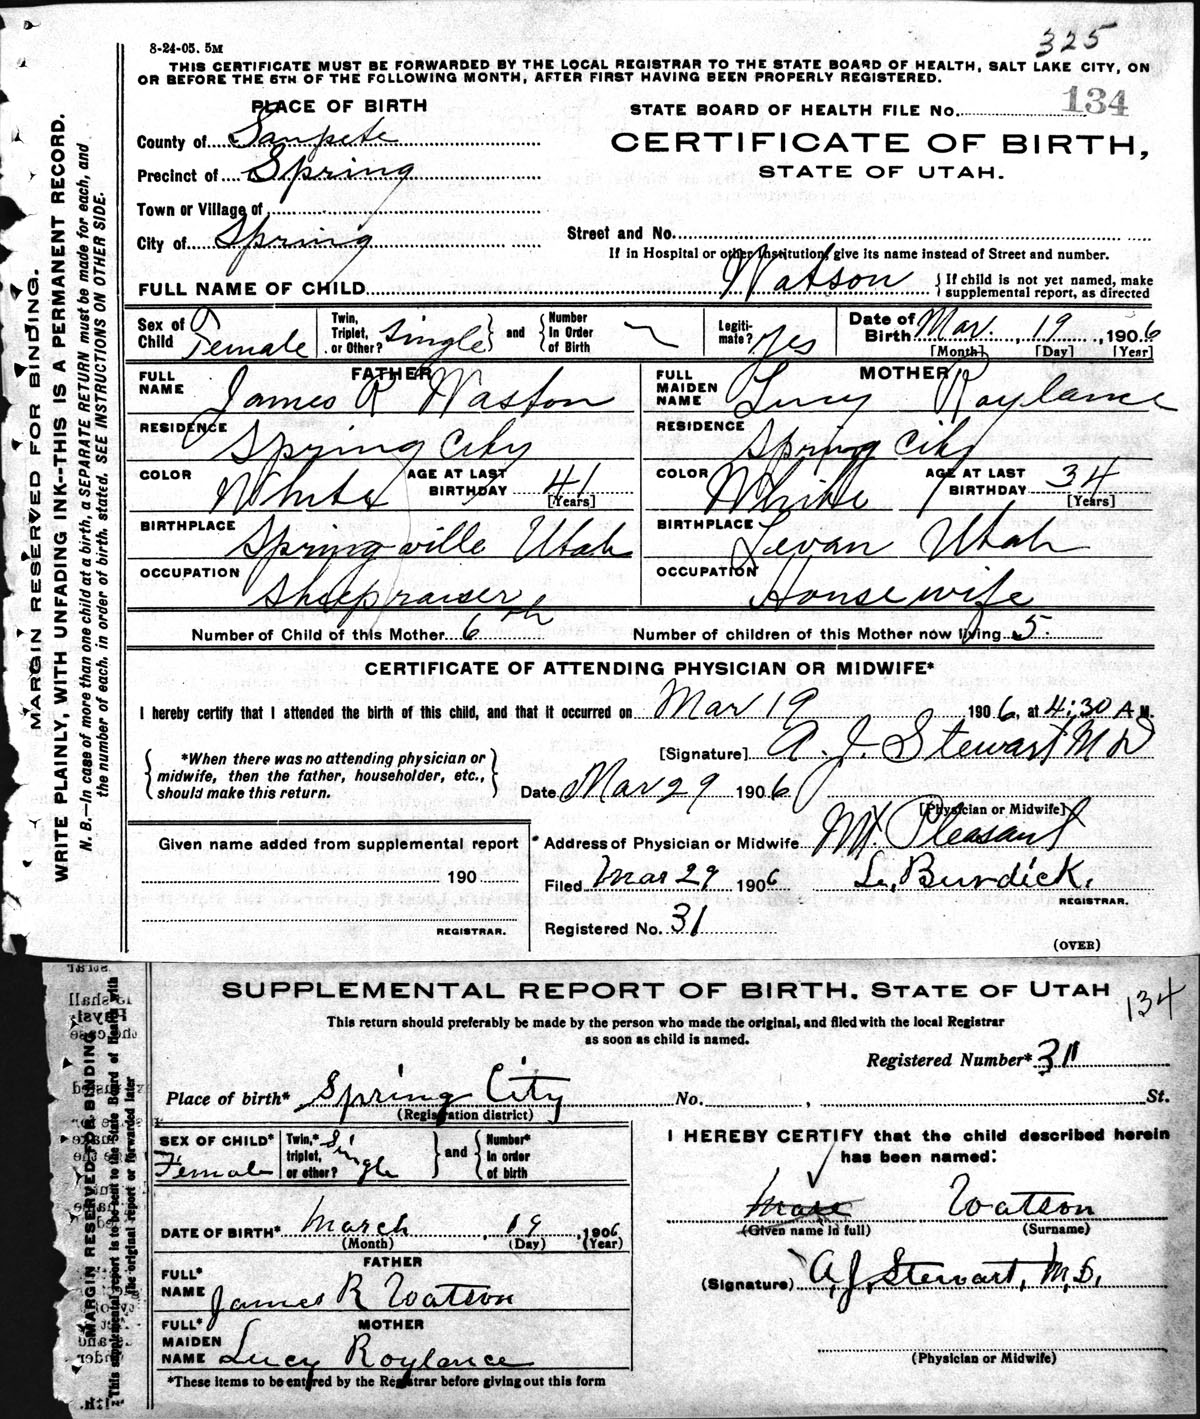 8-24-05. 5M
325
THIS CERTIFICATE MUST BE FORWARDED BY THE LOCAL REGISTRAR TO THE STATE BOARD OF HEALTH, SALT LAKE CITY, ON
OR BEFORE THE 5TH OF THE FOLLOWING MONTH, AFTER FIRST HAVING BEEN PROPERLY REGISTERED.
PLACE OF BIRTH
STATE BOARD OF HEALTH FILE No. 134
County of Sanpete
CERTIFICATE OF BIRTH,
Precinct of Spring
STATE OF UTAH.
Town or Village of
City of Spring
Street and No.
If in Hospital or other Institution, give its name instead of Street and number.
FULL NAME OF CHILD Watson { If child is not yet named, make
supplemental report, as directed
Sex of Child Female
Twin, Triplet, or Other? Single } and { Number In Order of Birth
Legitimate? Yes
Date of Birth Mar. 19, 1906
[Month] [Day] [Year]
FATHER
MOTHER
FULL NAME James R Waston
FULL MAIDEN NAME Lucy Roylance
RESIDENCE Spring City
RESIDENCE Spring City
COLOR White AGE AT LAST BIRTHDAY 41 [Years]
COLOR White AGE AT LAST BIRTHDAY 34 [Years]
BIRTHPLACE Springville Utah
BIRTHPLACE Levan Utah
OCCUPATION Sheepraiser
OCCUPATION Housewife
Number of Child of this Mother 6th Number of children of this Mother now living 5.
CERTIFICATE OF ATTENDING PHYSICIAN OR MIDWIFE*
I hereby certify that I attended the birth of this child, and that it occurred on Mar 19 1906, at 4:30 A M.
*When there was no attending physician or
midwife, then the father, householder, etc.,
should make this return.
[Signature] A. J. Stewart M D
Date Mar 29 1906
[Physician or Midwife]
Given name added from supplemental report
190
REGISTRAR.
* Address of Physician or Midwife Mt. Pleasant
Filed Mar 29 1906 L. Burdick.
REGISTRAR.
Registered No. 31
(OVER)
MARGIN RESERVED FOR BINDING.
WRITE PLAINLY, WITH UNFADING INK--THIS IS A PERMANENT RECORD.
N. B.—In case of more than one child at a birth, a SEPARATE RETURN must be made for each, and
the number of each, in order of birth, stated. SEE INSTRUCTIONS ON OTHER SIDE.
SUPPLEMENTAL REPORT OF BIRTH. STATE OF UTAH
134
This return should preferably be made by the person who made the original, and filed with the local Registrar
as soon as child is named.
Registered Number* 31
Place of birth* Spring City No. , St.
(Registration district)
SEX OF CHILD* Female
Twin,* triplet, or other? Single } and { Number* In order of birth
I HEREBY CERTIFY that the child described herein
has been named:
Watson
(Given name in full) (Surname)
DATE OF BIRTH* March 19, 1906
(Month) (Day) (Year)
(Signature) A. J. Stewart, M.D.
FATHER
FULL* NAME James R Watson
MOTHER
FULL* MAIDEN NAME Lucy Roylance
(Physician or Midwife)
*These items to be entered by the Registrar before giving out this form
MARGIN RESERVED FOR BINDING
This supplemental report is to be sent to the State Board of Health with
the original report or forwarded later